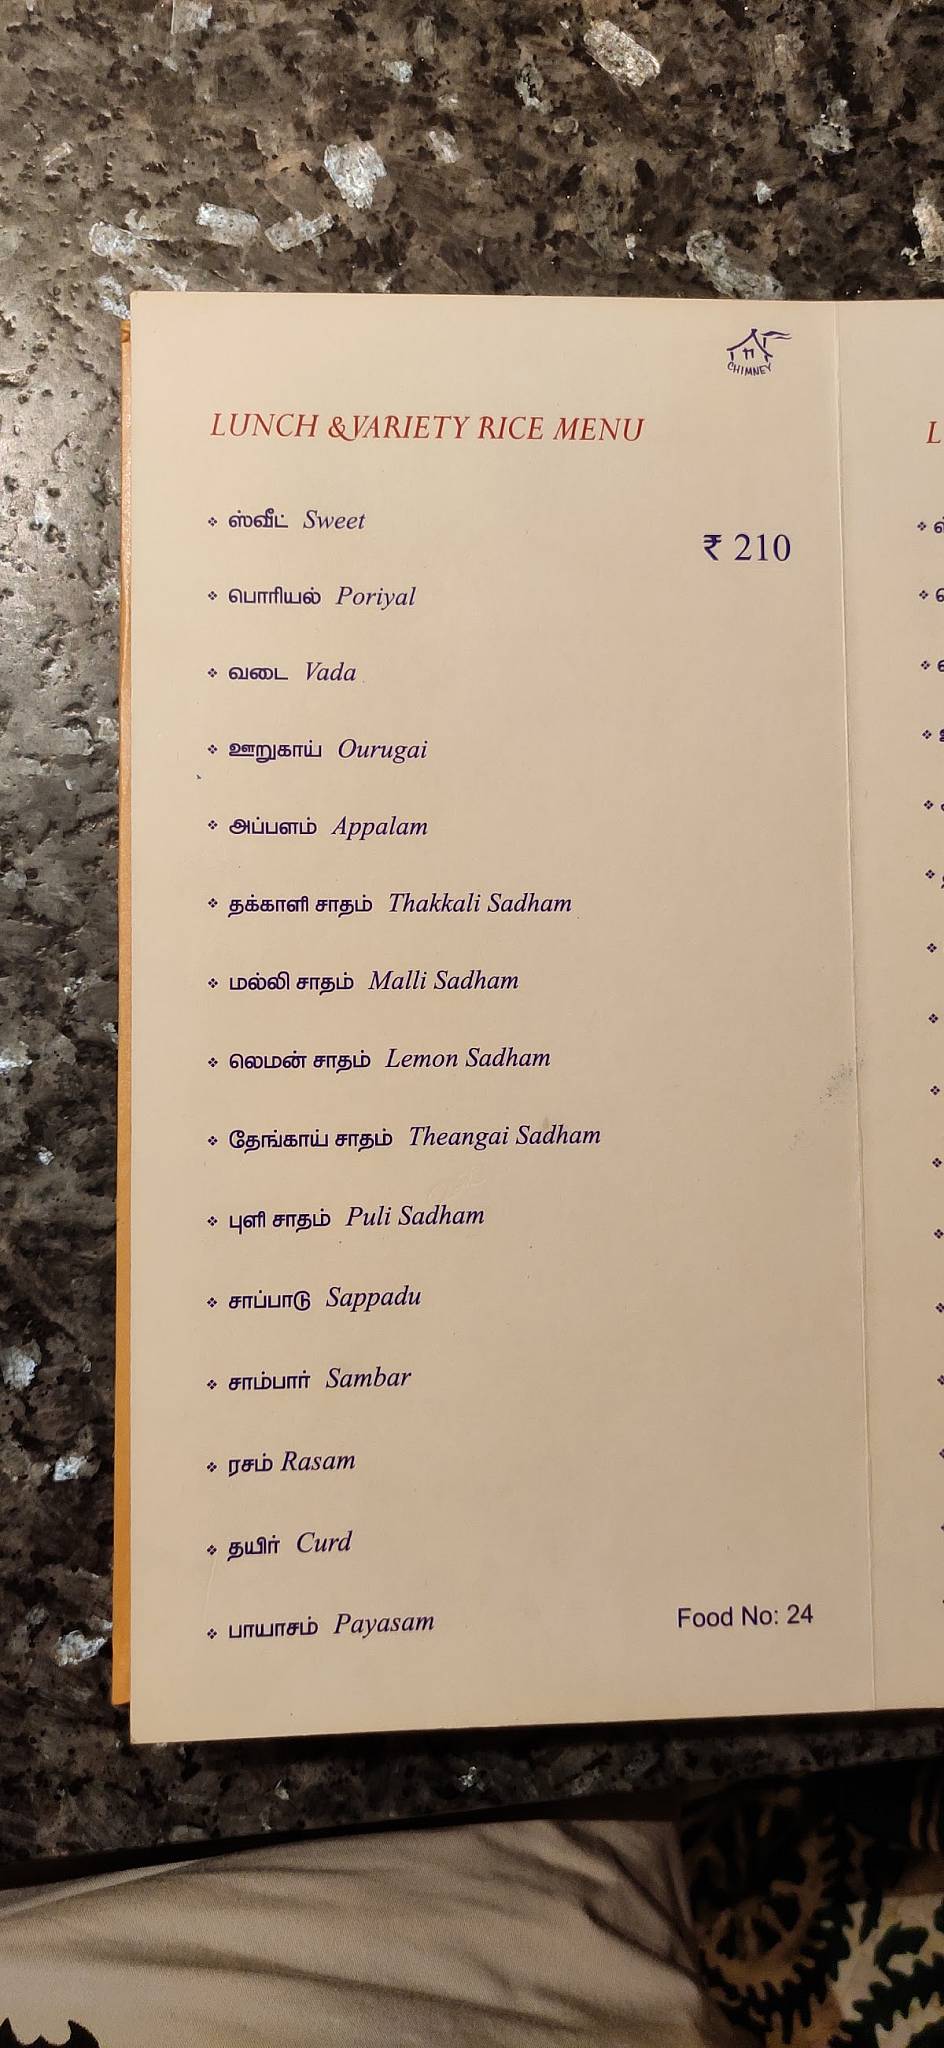 CHIMNEY
LUNCH & VARIETY RICE MENU
❖ ஸ்வீட் Sweet
₹ 210
❖ பொரியல் Poriyal
❖ வடை Vada
❖ ஊறுகாய் Ourugai
❖ அப்பளம் Appalam
❖ தக்காளி சாதம் Thakkali Sadham
❖ மல்லி சாதம் Malli Sadham
❖ லெமன் சாதம் Lemon Sadham
❖ தேங்காய் சாதம் Theangai Sadham
❖ புளி சாதம் Puli Sadham
❖ சாப்பாடு Sappadu
❖ சாம்பார் Sambar
❖ ரசம் Rasam
❖ தயிர் Curd
❖ பாயாசம் Payasam
Food No: 24